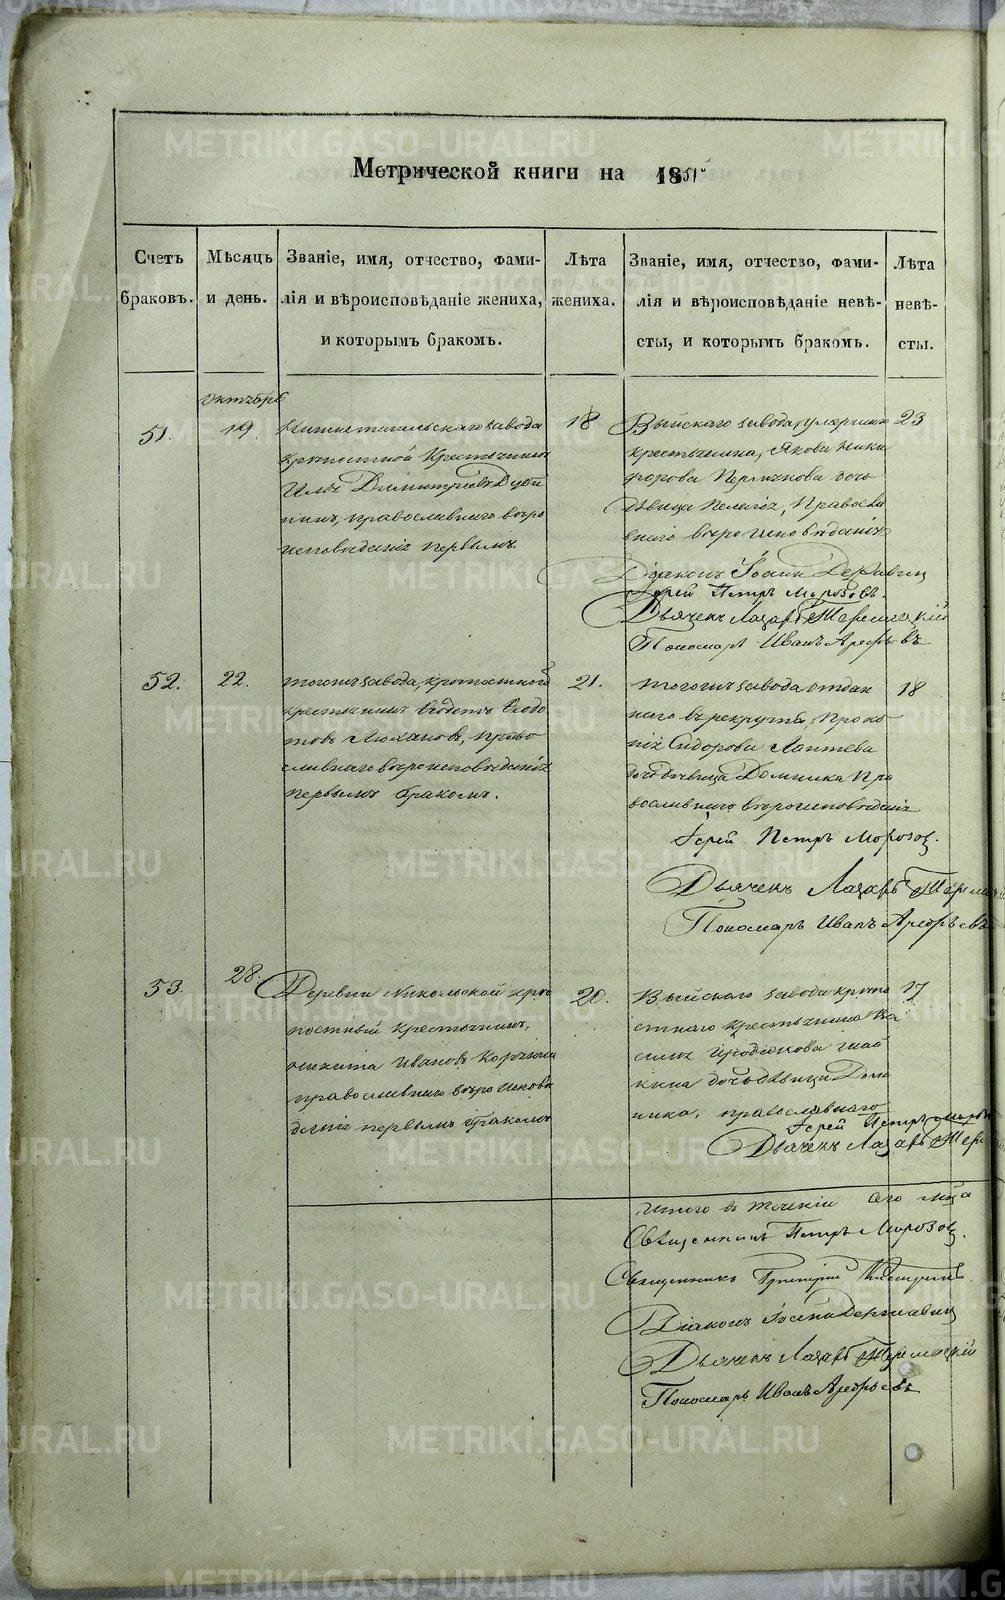 Метрической книги на 1851й
Счетъ браковъ.
Мѣсяцъ и день.
Званіе, имя, отчество, фами-
лія и вѣроисповѣданіе жениха,
и которымъ бракомъ.
Лѣта жениха.
Званіе, имя, отчество, фами-
лія и вѣроисповѣданіе невѣ-
сты, и которымъ бракомъ.
Лѣта невѣ-
сты.
Октября
51.
19.
Нижнетагильскаго завода
крѣпостной Крестьянинъ
Илья Димитріевъ
православнаго вѣро
исповѣданія первымъ.
18
Выйскаго завода умершаго
крестьянина, Якова Ники
форова дочь
дѣвица Пелагія, Правосла
внаго вѣроисповѣданія
23
Діаконъ Іоаннъ Державинъ
Іерей Петръ Морозовъ.
Дьячекъ Лазарь
Пономарь Иванъ Арефьевъ
52.
22.
тогожъ завода, крѣпостной
крестьянинъ Ѳедотъ Ѳедо
товъ право
славнаго вѣроисповѣданія
первымъ бракомъ.
21.
тогожъ завода отдан
наго въ рекруты, Проко
пія Сидорова Лаптева
дочь дѣвица Домника Пра
вославнаго вѣроисповѣданія
18
Іерей Петръ Морозовъ.
Дьячекъ Лазарь
Пономарь Иванъ Арефьевъ
53
28.
Деревни Никольской крѣ
постный крестьянинъ,
Никита Ивановъ
православнаго вѣро исповѣ
данія первымъ бракомъ
20.
Выйскаго завода крѣпо
стнаго крестьянина Ва
силія
дочь дѣвица Дом
ника, православнаго
17
Іерей Петръ
Дьячекъ Лазарь
Итого въ теченіи сего м-ца
Священникъ Петръ Морозовъ.
Священникъ Григорій
Діаконъ Іоаннъ Державинъ
Дьячекъ Лазарь
Пономарь Иванъ Арефьевъ
METRIKI.GASO-URAL.RU